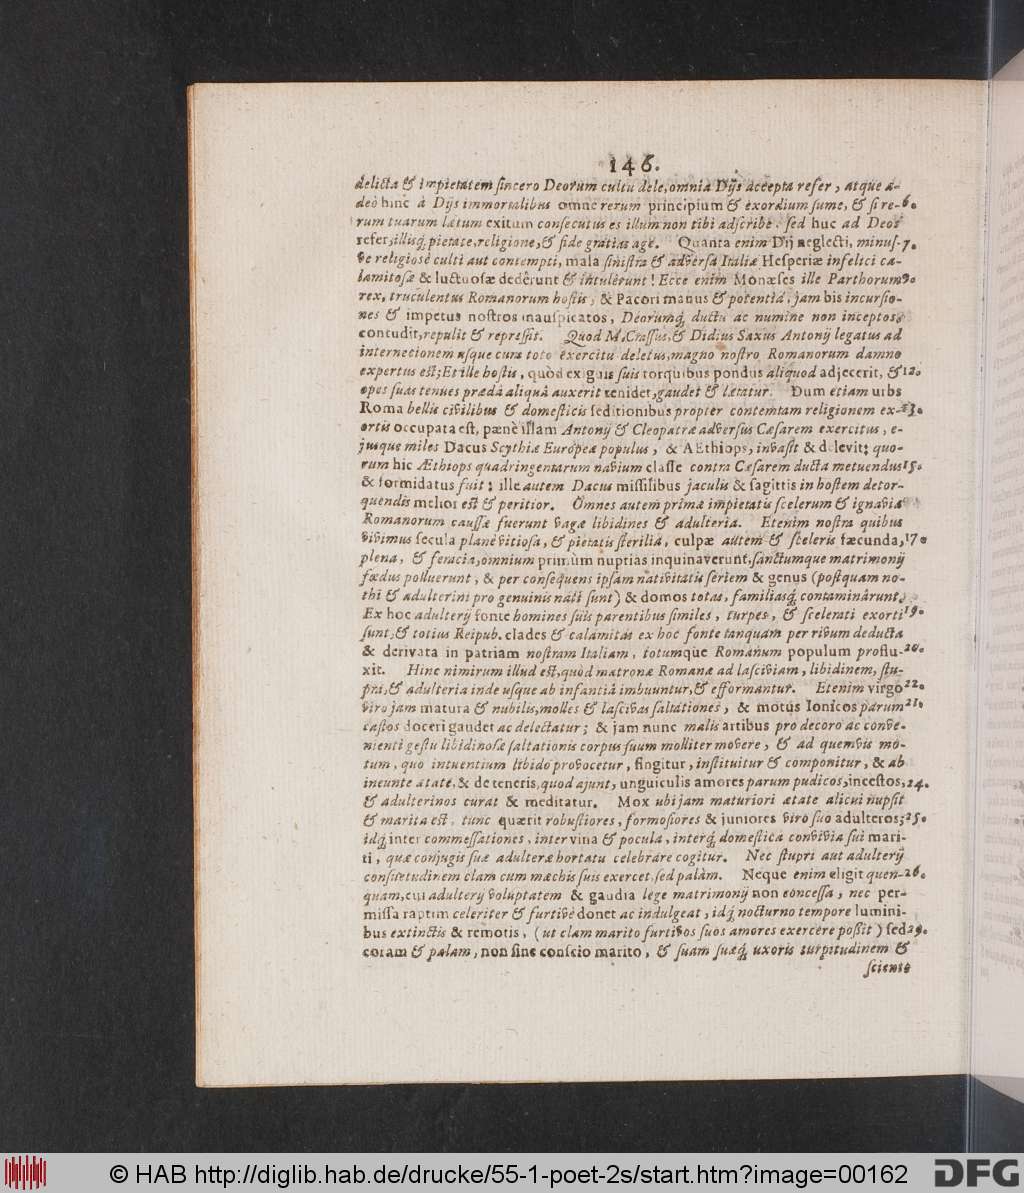 146.
delicta & impietatem sincero Deorum cultu dele, omnia Dijs accepta refer, atque a-
deò hinc à Dijs immortalibus omne rerum principium & exordium sume, & si re- 6.
rum tuarum lætum exitum consecutus es illum non tibi adscribe: sed huc ad Deos
refer, illisq́; pietate, religione, & fide gratias age. Quanta enim Dij neglecti, minus- 7.
ve religiosè culti aut contempti, mala sinistra & adversa Italiæ Hesperiæ infelici ca-
lamitosæ & luctuosæ dedêrunt & intulêrunt! Ecce enim Monæses ille Parthorum 9.
rex, truculentus Romanorum hostis, & Pacori manus & potentia, jam bis incursio-
nes & impetus nostros inauspicatos, Deorumq́; ductu ac numine non inceptos,
contudit, repulit & repressit. Quod M. Crassus, & Didius Saxus Antonij legatus ad
internecionem usque cum toto exercitu deletus, magno nostro Romanorum damno
expertus est; Et ille hostis, quòd exiguis suis torquibus pondus aliquod adjecerit, & 12.
opes suas tenues prædâ aliquâ auxerit renidet, gaudet & lætatur. Dum etiam urbs
Roma bellis civilibus & domesticis seditionibus propter contemtam religionem ex- 13.
ortis occupata est, pænè illam Antonij & Cleopatræ adversus Cæsarem exercitus, e-
jusque miles Dacus Scythiæ Europeæ populus, & AEthiops, invasit & delevit: quo-
rum hic Æthiops quadringentarum navium classe contra Cæsarem ducta metuendus 15.
& formidatus fuit: ille autem Dacus missilibus jaculis & sagittis in hostem detor-
quendis melior est & peritior. Omnes autem primæ impietatis scelerum & ignaviæ
Romanorum caussæ fuerunt vagæ libidines & adulteria. Etenim nostra quibus
vivimus secula planè vitiosa, & pietatis sterilia, culpæ autem & sceleris fæcunda, 17.
plena, & feracia, omnium primùm nuptias inquinaverunt, sanctumque matrimonij
fœdus polluerunt, & per consequens ipsam nativitatis seriem & genus (postquam no-
thi & adulterini pro genuinis nati sunt) & domos totas, familiasq́; contaminârunt.
Ex hoc adulterij fonte homines suis parentibus similes, turpes, & scelerati exorti 19.
sunt, & totius Reipub. clades & calamitas ex hoc fonte tanquam per rivum deducta
& derivata in patriam nostram Italiam, totumque Romanum populum proflu- 20.
xit. Hinc nimirum illud est, quòd matronæ Romanæ ad lasciviam, libidinem, stu-
pra, & adulteria inde usque ab infantiâ imbuuntur, & efformantur. Etenim virgo 22.
viro jam matura & nubilis, molles & lascivas saltationes, & motus Ionicos parum 21.
castos doceri gaudet ac delectatur; & jam nunc malis artibus pro decoro ac conve-
nienti gestu libidinosæ saltationis corpus suum molliter movere, & ad quemvis mo-
tum, quo intuentium libido provocetur, fingitur, instituitur & componitur, & ab
ineunte ætate, & de teneris, quod ajunt, unguiculis amores parum pudicos, incestos, 24.
& adulterinos curat & meditatur. Mox ubi jam maturiori ætate alicui nupsit
& marita est, tunc quærit robustiores, formosiores & juniores viro suo adulteros; 25.
idq́; inter commessationes, inter vina & pocula, interq́; domestica convivia sui mari-
ti, quæ conjugis suæ adulteræ hortatu celebrare cogitur. Nec stupri aut adulterij
consuetudinem clam cum mœchis suis exercet, sed palàm. Neque enim eligit quen- 26.
quam, cui adulterij voluptatem & gaudia lege matrimonij non concessa, nec per-
missa raptim celeriter & furtivè donet ac indulgeat, idq́; nocturno tempore lumini-
bus extinctis & remotis, (ut clam marito furtivos suos amores exercere possit) sed 29.
coram & palam, non sine conscio marito, & suam suæq́; uxoris turpitudinem &
sciente
© HAB http://diglib.hab.de/drucke/55-1-poet-2s/start.htm?image=00162
DFG